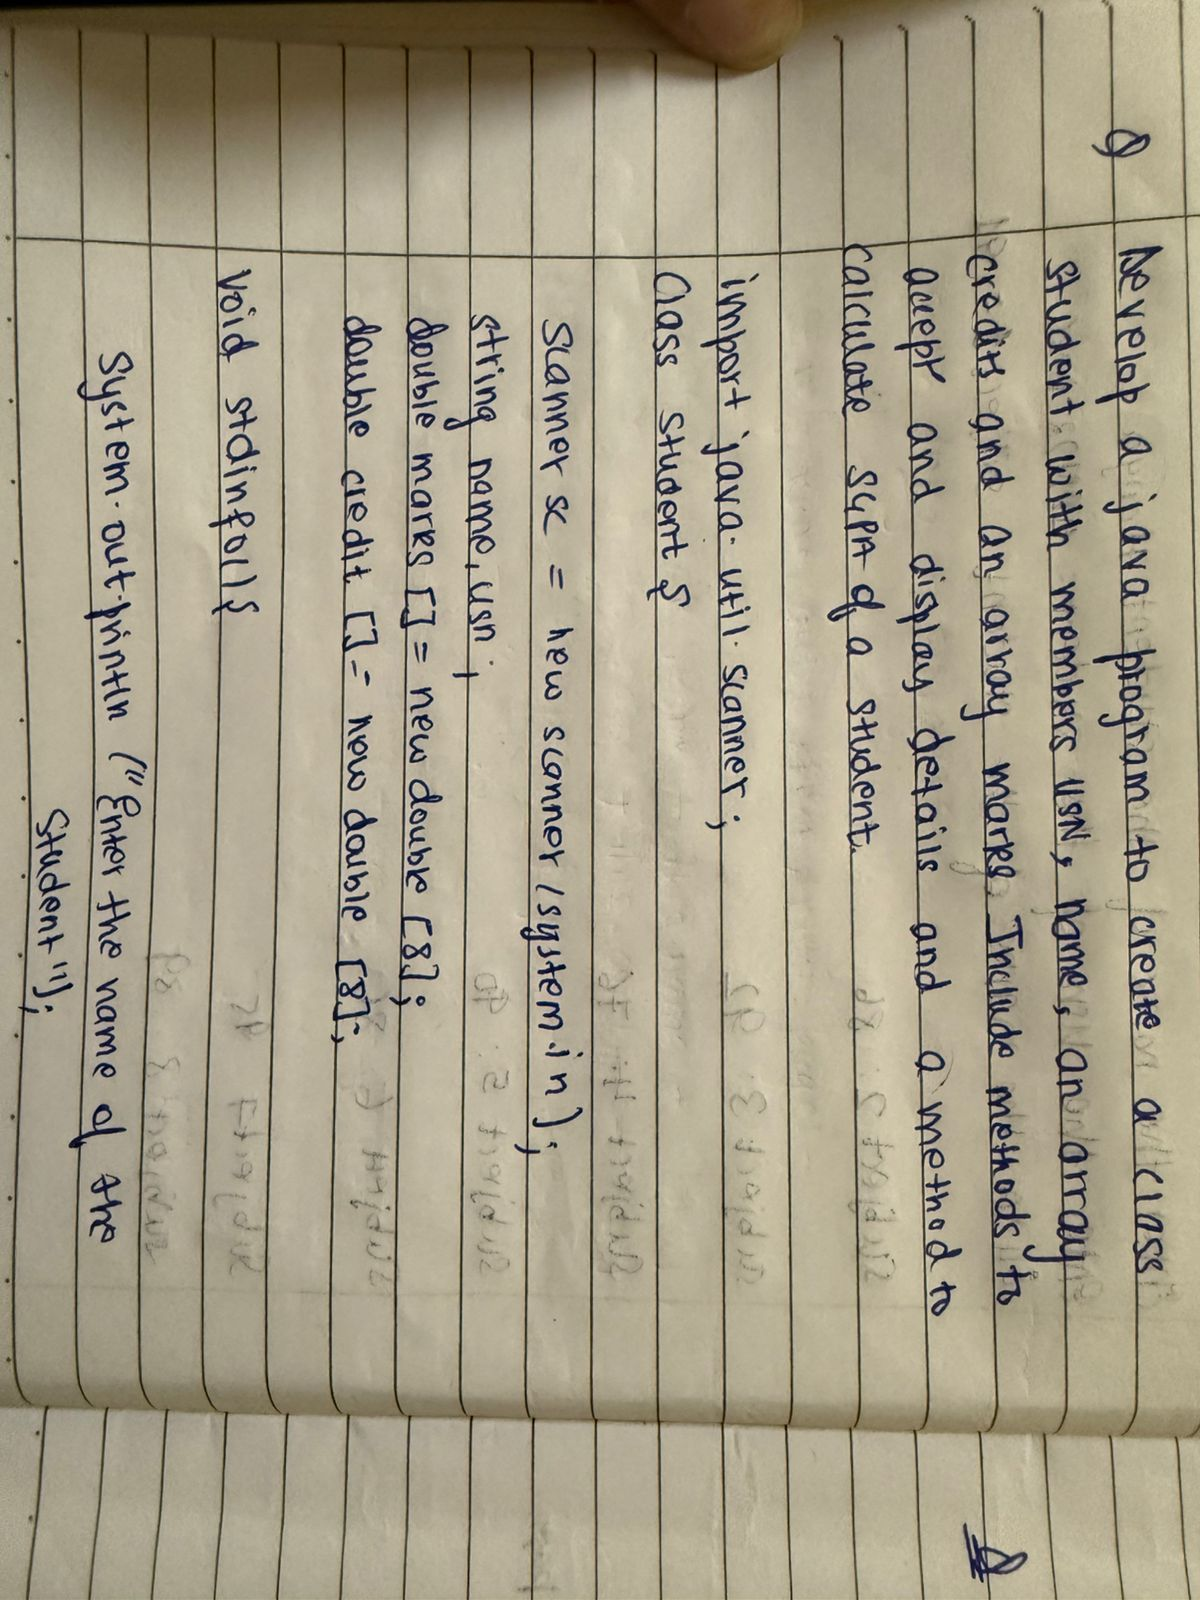 Q Develop a java program to create a class
student with members USN, name, an array
credits and an array marks. Include methods to
accept and display details and a method to
calculate SGPA of a student.
import java.util.scanner;
Class Student {
Scanner sc = new scanner (system.in);
string name, usn;
double marks [] = new double [8];
double credit [] = new double [8];
void stdinfo() {
System.out.println ("Enter the name of the
Student");